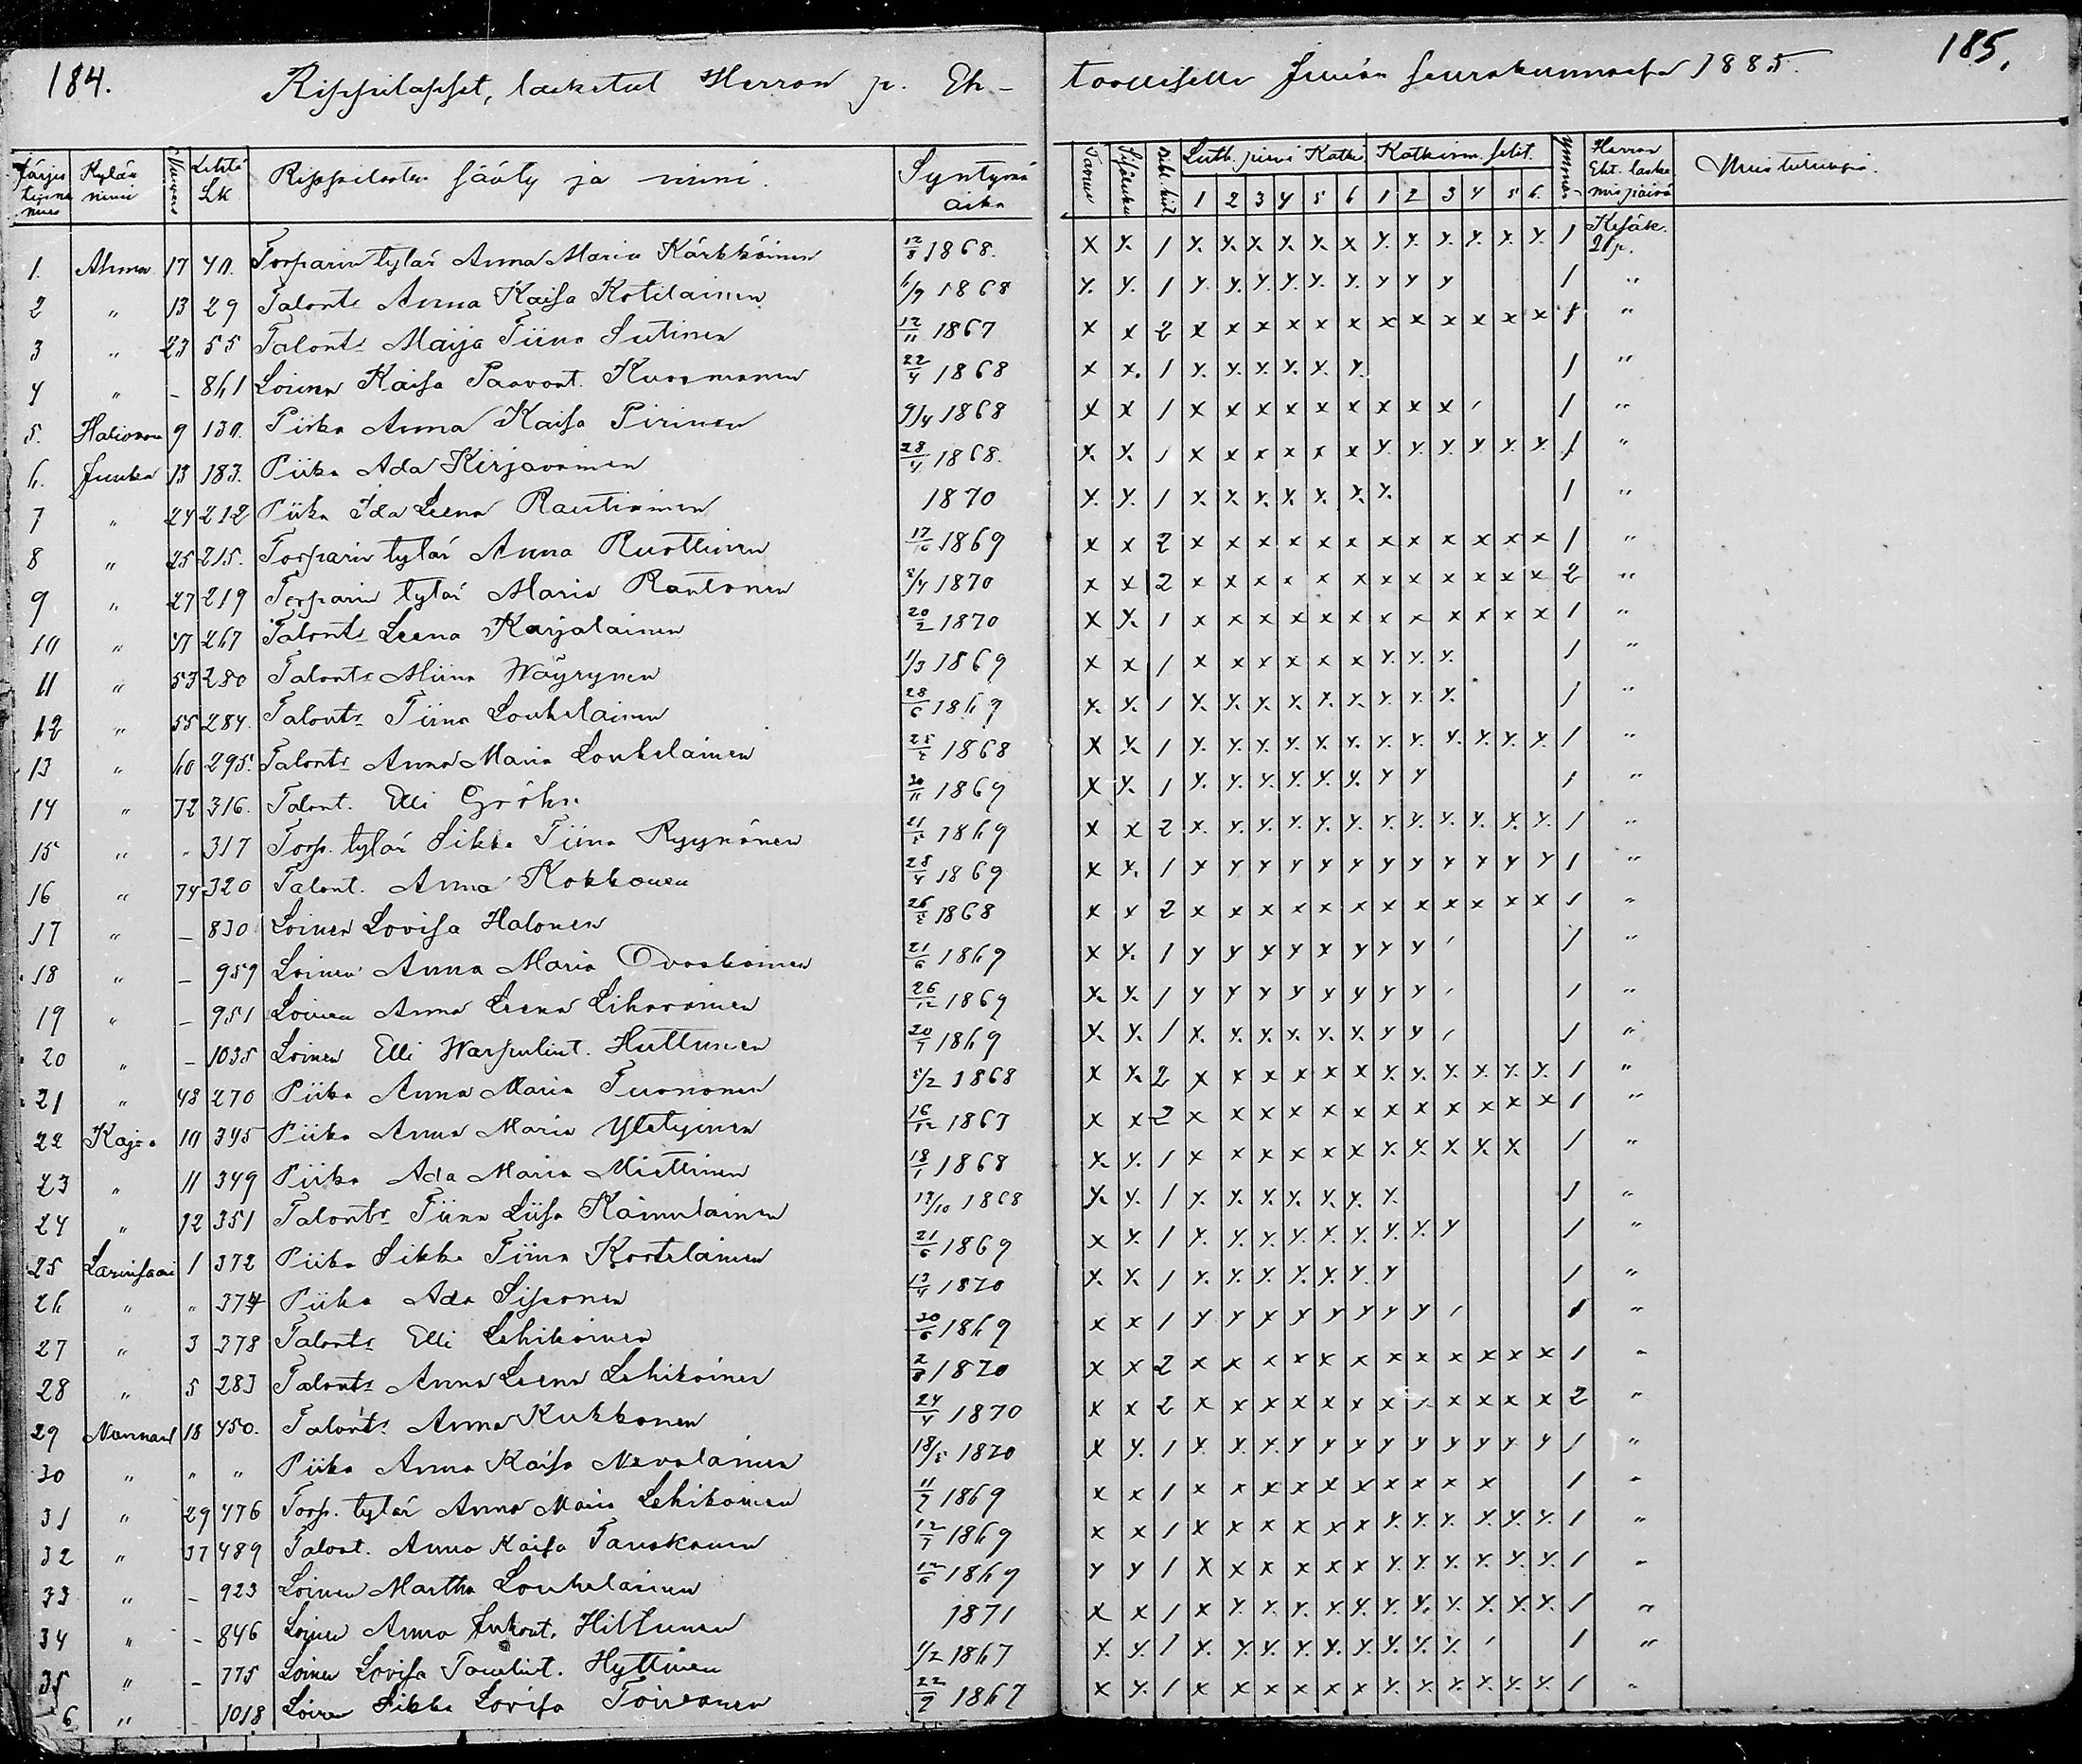 184.
185.
Rippilapset, lasketut Herran p. Eh-
toolliselle Juuan seurakunnassa 1885.
Järjestysnumero Kylän nimi Numero Lehti Lk Rippilasten sääty ja nimi. Syntymä aika
Tavuu Sisäluku Bibl. hist. Luth. pieni Katk. Katkism. selit. Ymmär. Herran Eht. laskemispäivä Muistutuksia.
1 2 3 4 5 6 1 2 3 4 5 6.
1. Ahmo 17 40. Torparin tytär Anna Maria Kärkkäinen 12/8 1868. x x 1 x x x x x x x x x x x x 1 Kesäk. 21 p.
2 " 13 29 Talont. Anna Kaisa Kotilainen 6/9 1868 x x 1 x x x x x x x x x 1 "
3 " 23 55 Talont. Maija Tiina Sutinen 12/11 1867 x x 2 x x x x x x x x x x x x 1 "
4 " - 861 Loinen Kaisa Paavont. Kuosmanen 22/4 1868 x x 1 x x x x x x 1 "
5. Halivaara 9 130. Piika Anna Kaisa Pirinen 9/4 1868 x x 1 x x x x x x x x x / 1 "
6. Juuka 13 183. Piika Ada Kirjavainen 28/4 1868. x x 1 x x x x x x x x x x x x 1 "
7 " 24 212 Piika Ida Leena Rautiainen 1870 x x 1 x x x x x x x 1 "
8 " 25 215. Torparin tytär Anna Ruottinen 17/10 1869 x x 2 x x x x x x x x x x x x 1 "
9 " 27 219 Torparin tytär Maria Rantonen 8/4 1870 x x 2 x x x x x x x x x x x x 2 "
10 " 47 267 Talont. Leena Karjalainen 20/2 1870 x x 1 x x x x x x x x x x x x 1 "
11 " 53 280 Talont. Miina Wäyrynen 1/3 1869 x x 1 x x x x x x x x x 1 "
12 " 55 284. Talont. Tiina Louhelainen 28/6 1869 x x 1 x x x x x x x x x 1 "
13 " 60 295. Talont. Anna Maria Louhelainen 1868 x x 1 x x x x x x x x x x x x 1 "
14 " 72 316. Talont. Elli Gröhn 30/11 1869 x x 1 x x x x x x x x 1 "
15 " " 317 Torp. tytär Sikka Tiina Ryynänen 1869 x x 2 x x x x x x x x x x x x 1 "
16 " 74 320 Talont. Anna Kokkonen 28/4 1869 x x 1 x x x x x x x x x x x x 1 "
17 " - 830 Loinen Lovisa Halonen 1868 x x 2 x x x x x x x x x x x x 1 "
18 " - 959 Loinen Anna Maria Ovaskainen 21/6 1869 x x 1 x x x x x x x x / 1 "
19 " - 951 Loinen Anna Leena Lihavainen 26/12 1869 x x 1 x x x x x x x x / 1 "
20 " - 1035 Loinen Elli Warpulint. Huttunen 20/7 1869 x x 1 x x x x x x x x / 1 "
21 " 48 270 Piika Anna Maria Turonen 8/2 1868 x x 2 x x x x x x x x x x x x 1 "
22 Kajoo 10 345 Piika Anna Maria Yletyinen 16/12 1867 x x 2 x x x x x x x x x x x x 1 "
23 " 11 349 Piika Ada Maria Miettinen 18/1 1868 x x 1 x x x x x x x x x x x 1 "
24 " 12 351 Talont. Tiina Liisa Kainulainen 13/10 1868 x x 1 x x x x x x x 1 "
25 Larinsaari 1 372 Piika Sikka Tiina Kortelainen 21/6 1869 x x 1 x x x x x x x x x 1 "
26 " " 374 Piika Ada Sisonen 13/4 1870 x x 1 x x x x x x x 1 "
27 " 3 378 Talont. Elli Lehikoinen 30/6 1869 x x 1 x x x x x x x x / 1 "
28 " 5 283 Talont. Anna Leena Lehikoinen 2/8 1870 x x 2 x x x x x x x x x x x x 1 "
29 Nunnanl 18 450. Talont. Anna Kukkonen 24/4 1870 x x 2 x x x x x x x x x x x x 2 "
30 " " " Piika Anna Kaisa Nevalainen 18/5 1870 x x 1 x x x x x x x x x x x x 1 "
31 " 29 476 Torp. tytär Anna Maria Lehikoinen 11/9 1869 x x 1 x x x x x x x x x x 1 "
32 " 37 489 Talont. Anna Kaisa Tanskanen 12/7 1869 x x 1 x x x x x x x x x x x x 1 "
33 " - 923 Loinen Martha Louhelainen 12/6 1869 x x 1 x x x x x x x x x x x x 1 "
34 " - 846 Loinen Anna Juhont. Hiltunen 1871 x x 1 x x x x x x x x x x x x 1 "
35 " - 775 Loinen Lovisa Paulint. Hyttinen 1/2 1867 x x 1 x x x x x x x x x / 1 "
6 " - 1018 Loinen Sikka Lovisa Toivanen 22/9 1867 x x 1 x x x x x x x x x x x x 1 "